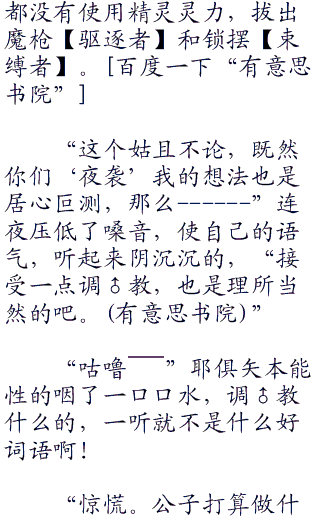 都没有使用精灵灵力，拔出
魔枪【驱逐者】和锁摆【束
缚者】。[百度一下“有意思
书院”]
“这个姑且不论，既然
你们‘夜袭’我的想法也是
居心叵测，那么------”连
夜压低了嗓音，使自己的语
气，听起来阴沉沉的，“接
受一点调♂教，也是理所当
然的吧。(有意思书院)”
“咕噜￣￣”耶俱矢本能
性的咽了一口口水，调♂教
什么的，一听就不是什么好
词语啊！
“惊慌。公子打算做什